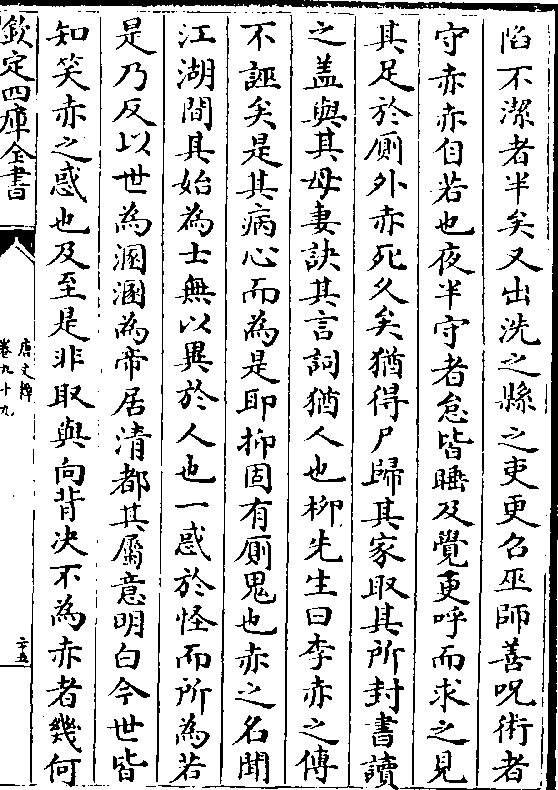 陷不潔者半矣又出洗之縣之吏更召巫師善呪術者
守赤赤自若也夜半守者怠皆睡及覺更呼而求之見
其足於厠外赤死久矣猶得尸歸其家取其所封書讀
之盖與其母妻訣其言詞猶人也柳先生曰李赤之傳
不誣矣是其病心而為是耶抑固有厠鬼也赤之名聞
江湖間其始為士無以異於人也一惑於怪而所為若
是乃反以世為溷溷為帝居清都其屬意明白今世皆
知笑赤之惑也及至是非取與向背决不為赤者幾何
欽定四庫全書
唐文粹
卷九十九
二十五